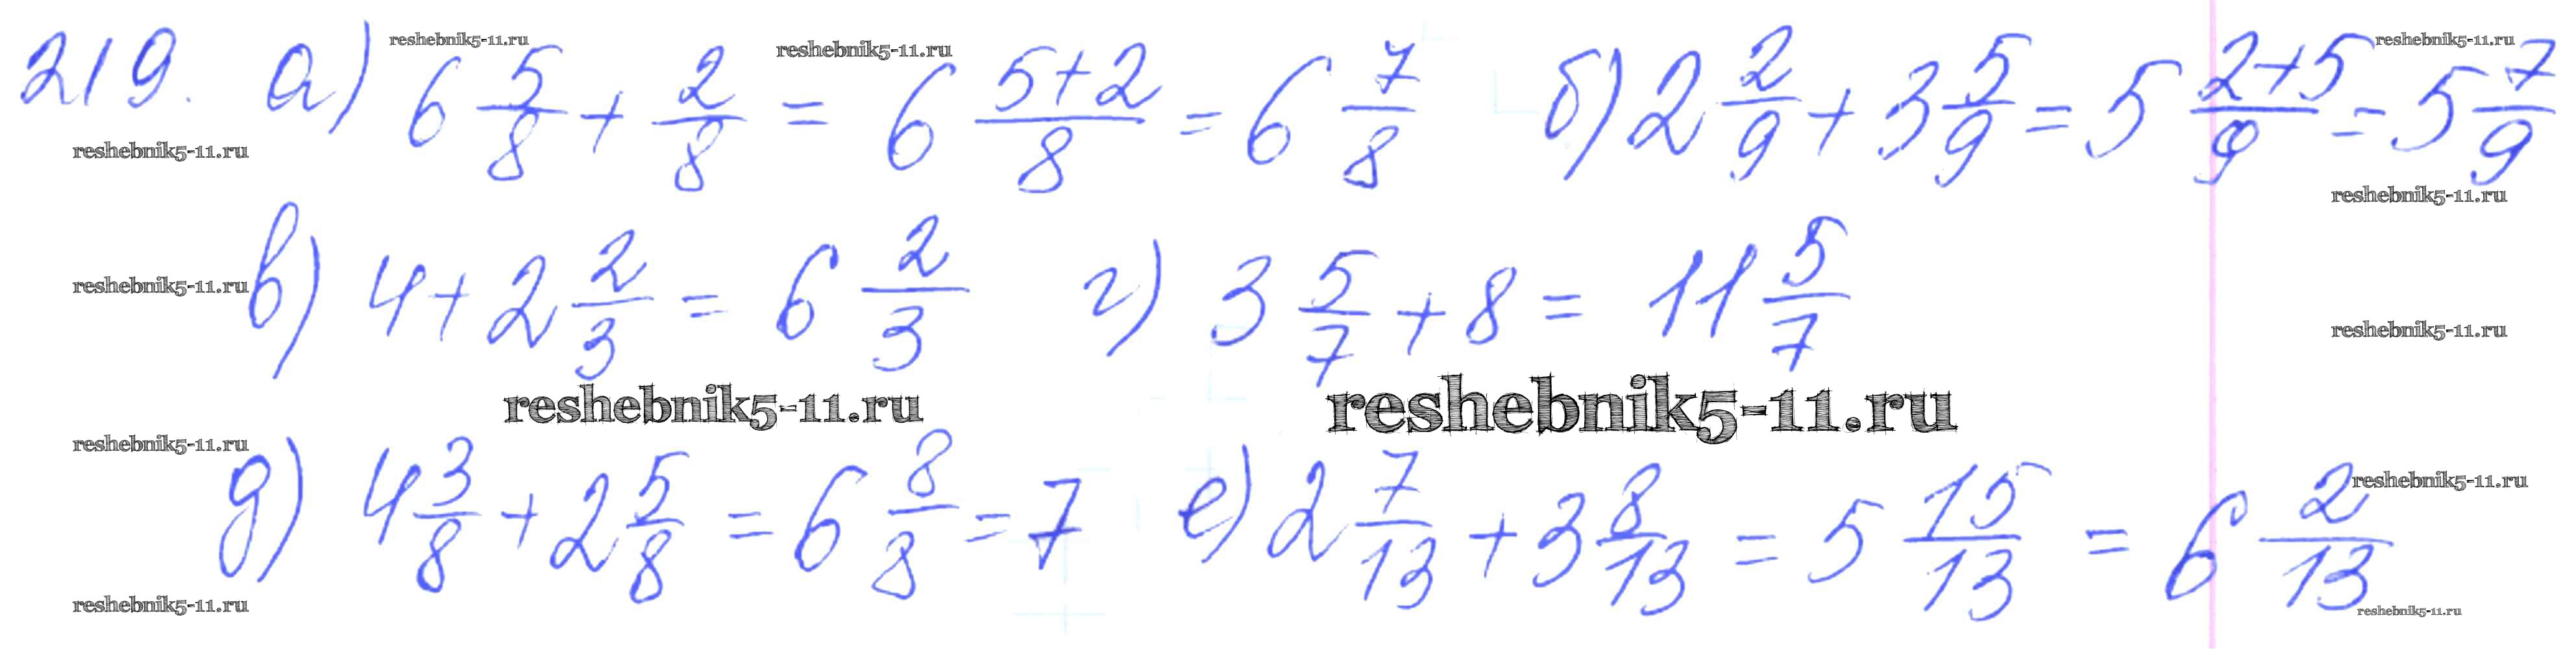 reshebnik5-11.ru reshebnik5-11.ru reshebnik5-11.ru
219. а) 6 5/8 + 2/8 = 6 (5+2)/8 = 6 7/8 б) 2 2/9 + 3 5/9 = 5 (2+5)/9 = 5 7/9
reshebnik5-11.ru reshebnik5-11.ru
в) 4 + 2 2/3 = 6 2/3 г) 3 5/7 + 8 = 11 5/7
reshebnik5-11.ru reshebnik5-11.ru
reshebnik5-11.ru reshebnik5-11.ru
reshebnik5-11.ru reshebnik5-11.ru
д) 4 3/8 + 2 5/8 = 6 8/8 = 7 е) 2 7/13 + 3 8/13 = 5 15/13 = 6 2/13
reshebnik5-11.ru reshebnik5-11.ru